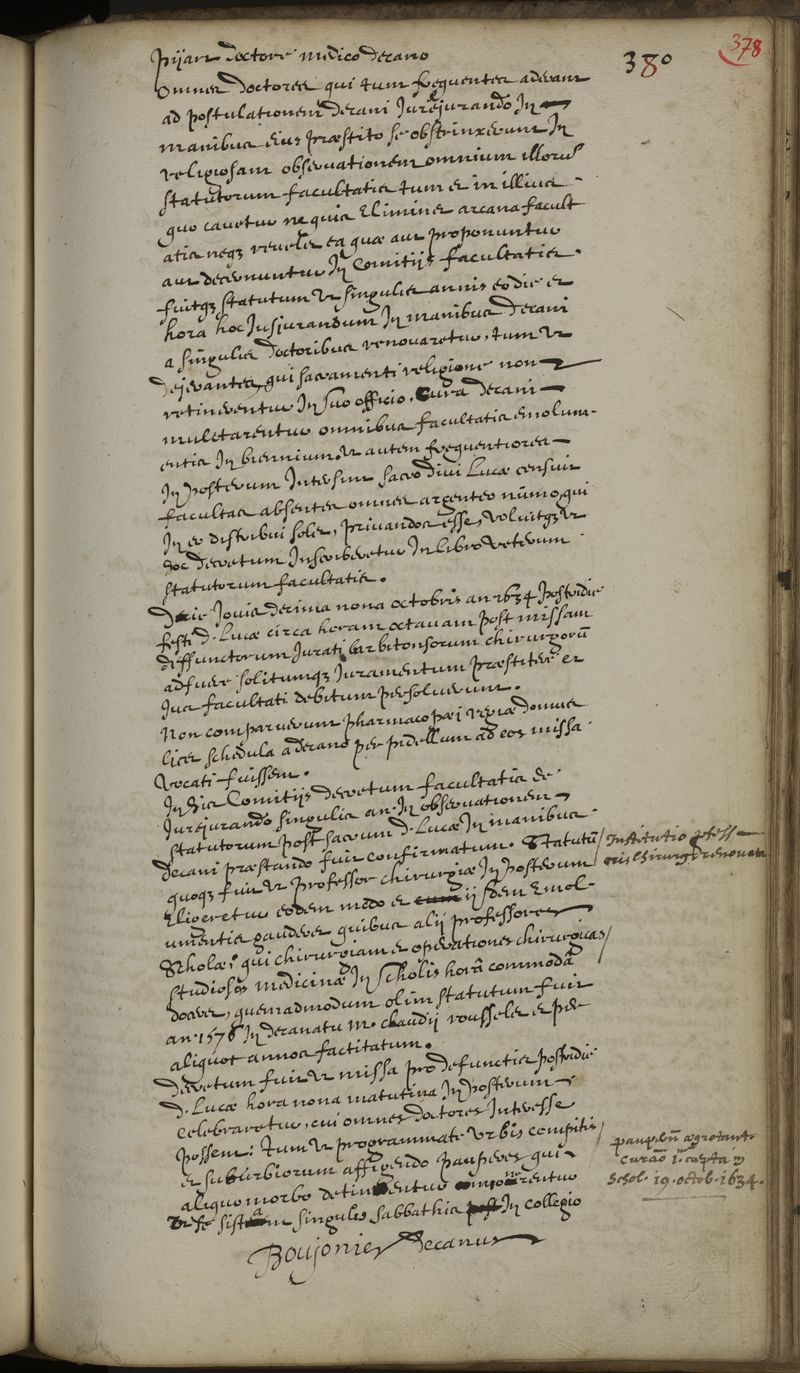 380
378
pijart doctore medico decano
Omnes doctores qui tum frequentes aderant
ad postulationem decani Jurejurando In
manibus eius præstito se obstrinxerunt In
religiosam observationem omnium illorũ
statutorum facultatis tum et in illius
quo cavetur ne quis Eliminet arcana facult
atis neqȝ revelet ea quæ aut proponuntur
aut decernuntur In Comitijs facultatis.
fuitqȝ statutum ut singulis annis eodie et
hora hoc Jusjurandum In manibus decani
a singulis doctoribus renovaretur, tum ut
dejerantes, qui sacramenti religione non
retinerentur In suo officio. Cura decani
mulctarentur omnibus facultatis emolum-
entis In biennium. Ut autem frequentiores
In posterum Intersint sacro divi Lucæ censuit
facultas absentes omnes argenteo nũmo, qui
In eo distribui solet, privandos esse, voluitqȝ ut
hoc decretum Inscriberetur In libro veterum
statutorum facultatis.
Die Jovis decima nona octobris an 1634 postridie
festi d. Lucæ circa horam octavam post missam
diffunctorum Jurati barbitonsorum chirurgorũ
adfuere solitumqȝ Juramentum præstitere et
Jus facultati debitum persolverunt.
Non comparuerunt pharmacopœi regiæ domus
licet schedula a decano per pidellum ad eos missa
Vocati fuissent.
In his Comitijs decretum facultatis de
Jurejurando singulis an. In observationem
statutorum post sacrum d. Lucæ In manibus
decani præstando fuit confirmatum. Statutũ
quoqȝ fuit ut professor chirurgiæ In posterum
Eligeretur eodem modo et ijsdem Emol-
umentis gauderet quibus alij professores
Scholæ, qui chirurgiam et operationes chirurgicas
studiosis medicinæ In scholis horâ commodâ
doceret, quemadmodum olim statutum fuit
an. 1576 In decanatu M. claudij rousselet et per
aliquot annos factitatum.
Institutio
chirurg. renovata
decretum fuit ut missa pro defunctis postridie
d. Lucæ hora nona matutina In posterum
celebraretur, cui omnes doctores Interesse
possent: tum ut programmate urbis compitis
et suburbiorum affigendo pauperes qui
aliquo morbo detinentur
ut se sistant singulis sabbathis In collegio
paupẽrũ ægrotant.
curaõ
Schol. 19. octob. 1634.
Boujonier Decanus